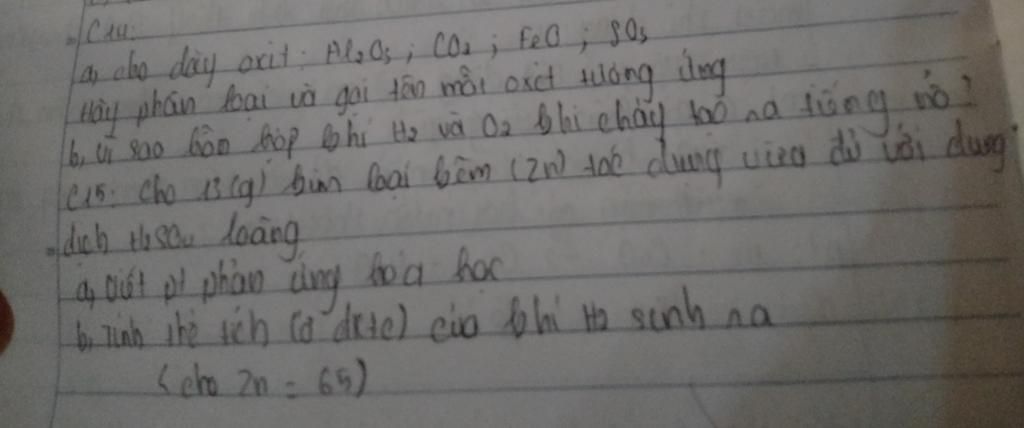 C14:
a, cho dãy oxit: Al₂O₃; CO₂; FeO; SO₃
Hãy phân loại và gọi tên mỗi oxit tương ứng
b, vì sao hỗn hợp khí H₂ và O₂ khi cháy tạo ra tiếng nổ?
C15: Cho 13(g) kim loại kẽm (Zn) tác dụng vừa đủ với dung
dịch H₂SO₄ loãng
a, viết pt phản ứng hóa học
b, Tính thể tích (ở đktc) của khí H₂ sinh ra
(cho Zn = 65)